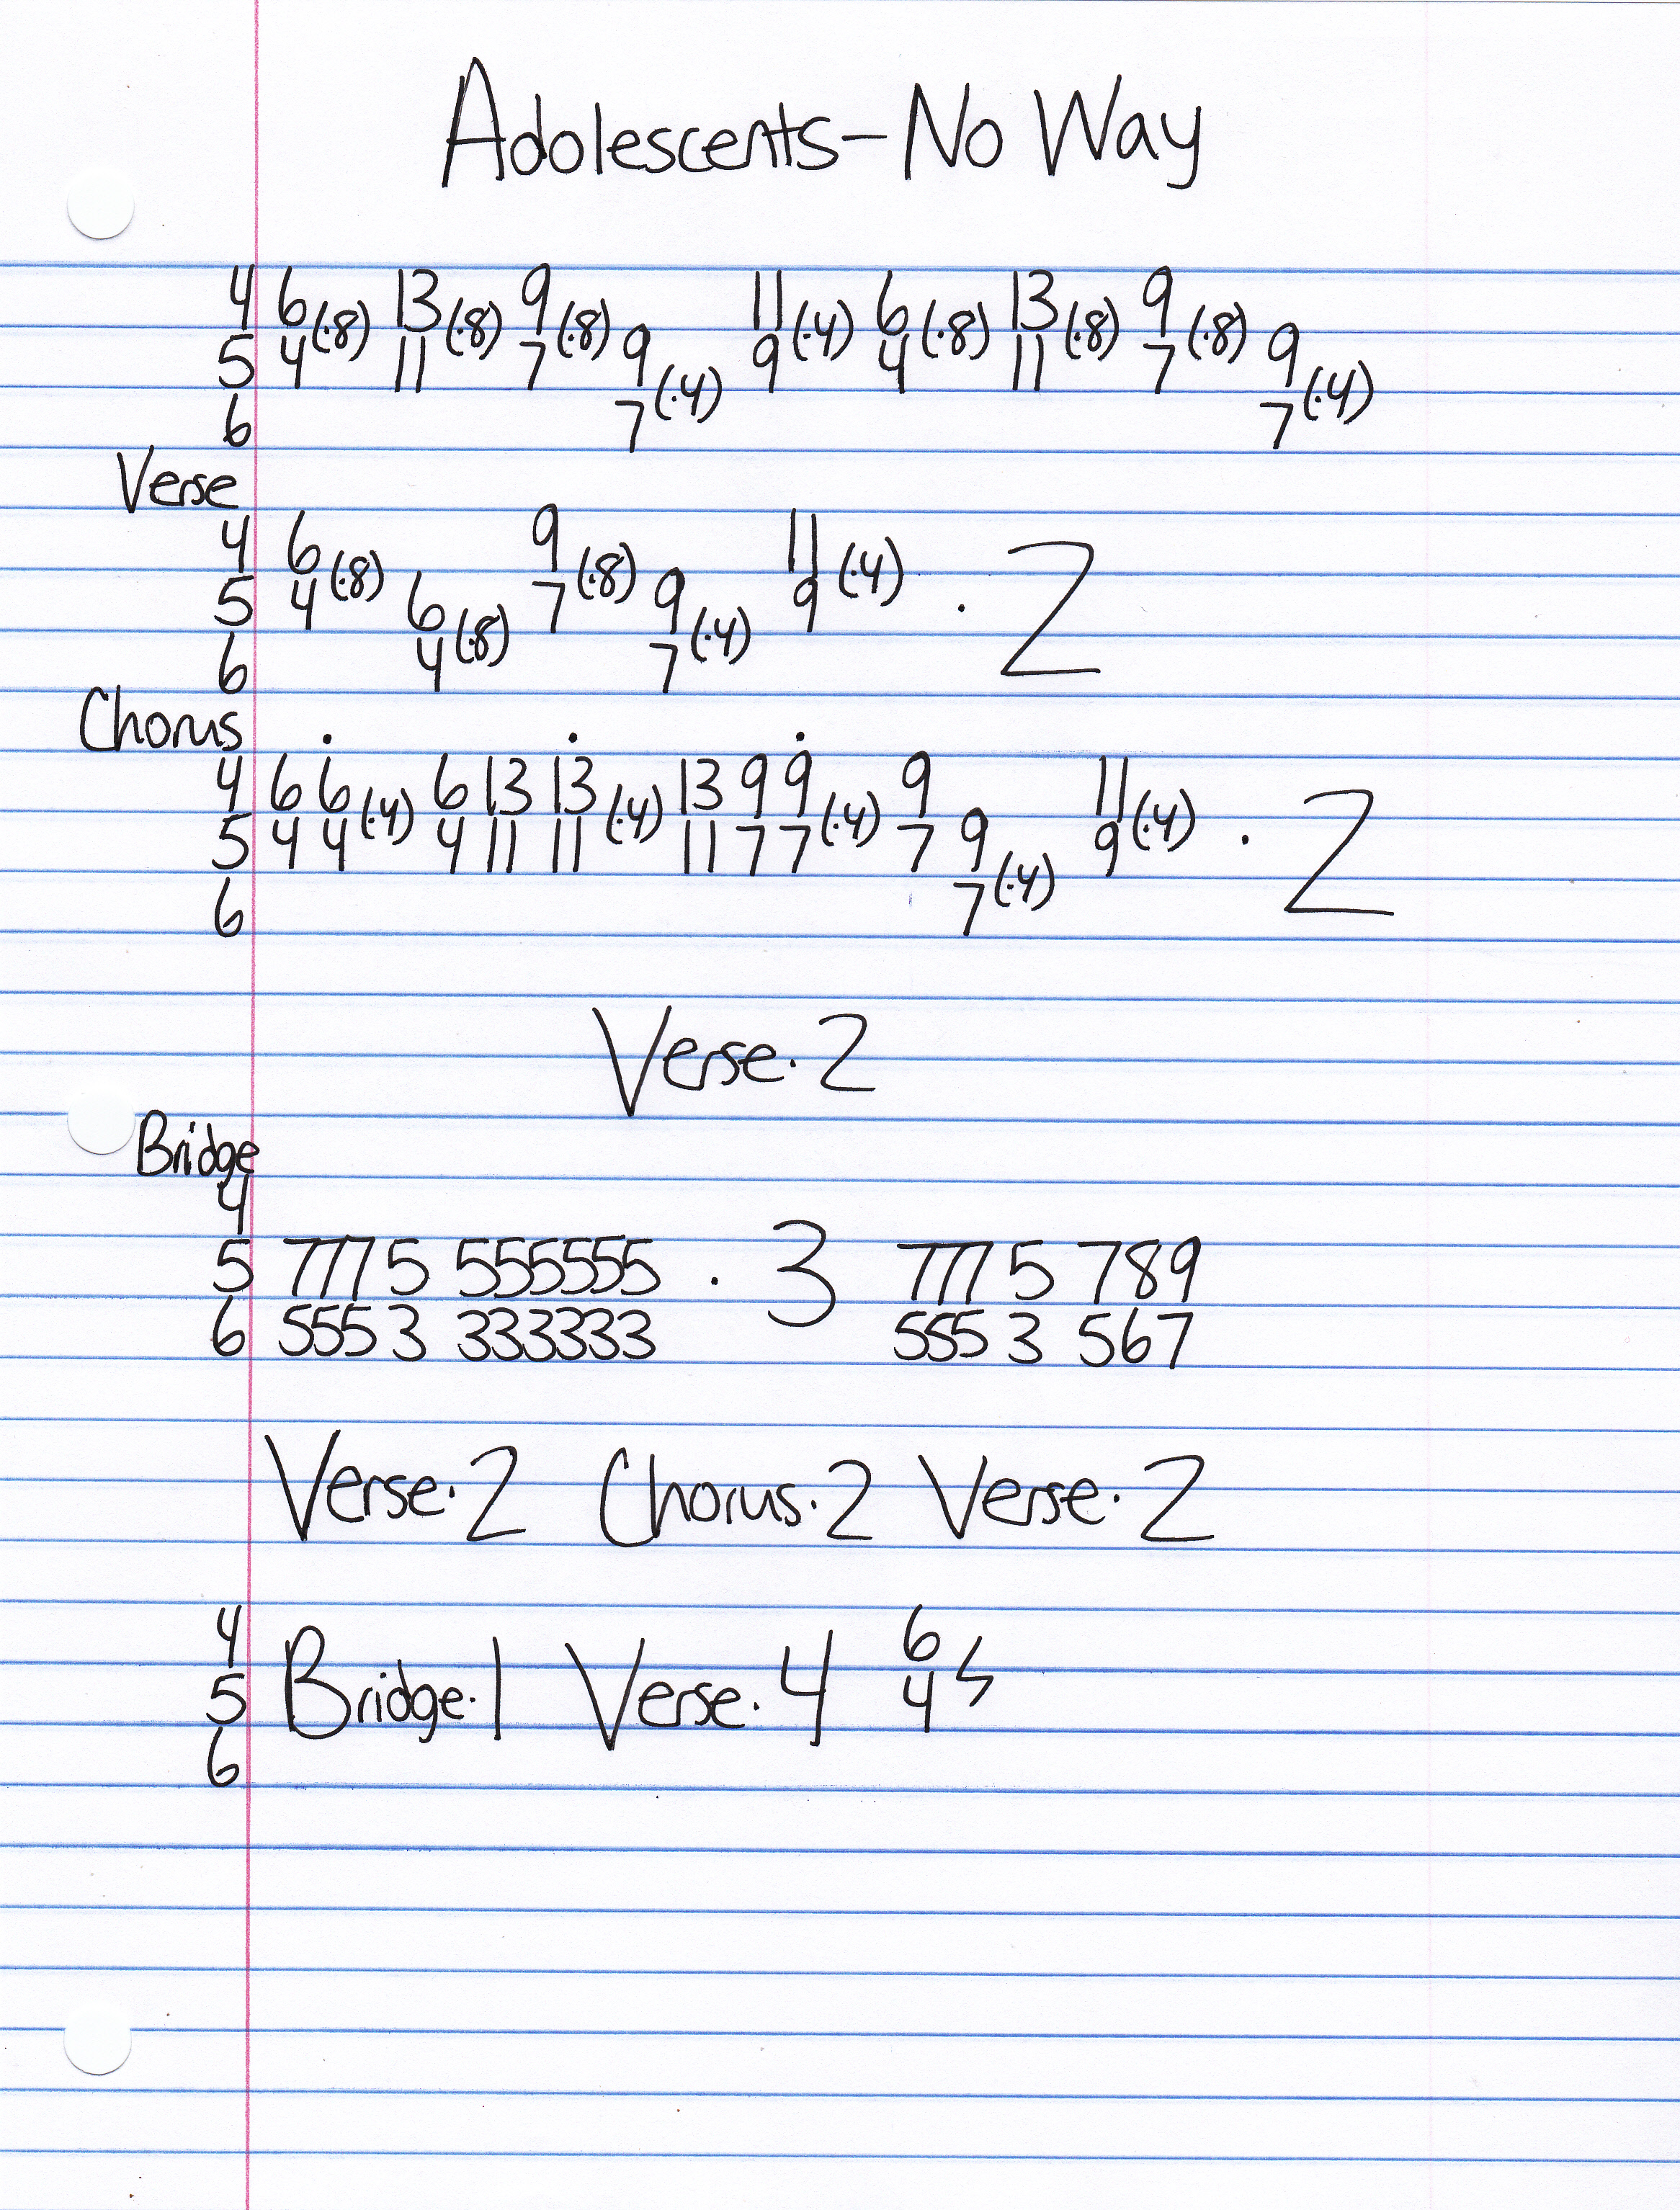 Adolescents-No Way
4 6(·8) 13(·8) 9(·8) 11(·4) 6(·8) 13(·8) 9(·8)
5 4 11 7 9(·4) 9 4 11 7 9(·4)
6 7 7
Verse
4 6(·8) 9(·8) 11(·4) · 2
5 4 6(·8) 7 9(·4) 9
6 4 7
Chorus
4 6 6̇(·4) 6 13 1̇3(·4) 13 9 9̇(·4) 9 11(·4) · 2
5 4 4 4 11 11 11 7 7 7 9(·4) 9
6 7
Verse·2
Bridge
4
5 7775 555555 · 3 777 5 789
6 5553 333333 555 3 567
Verse·2 Chorus·2 Verse·2
4 6
5 Bridge·1 Verse·4 4
6